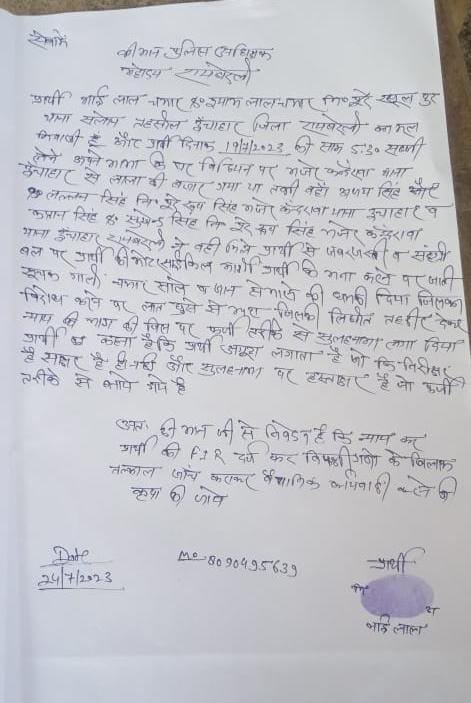 सेवामें
श्रीमान पुलिस अधीक्षक
महोदय रायबरेली
प्रार्थी भाई लाल चमार s/o श्याम लाल चमार नि० पूरे खुशल पुर
थाना सलोन तहसील ऊँचाहार जिला रायबरेली का मूल
निवासी है और प्रार्थी दिनांक 19/7/2023 की साम 5:30 सब्जी
लेने अपने मामा के घर विधियन पर मजरे कन्दरावा थाना
ऊँचाहार से लाला की बजार गया था तभी वहाँ अभय सिंह और
s/o लल्लन सिंह नि० पूरे रूप सिंह मजरे कंदरावा थाना ऊचाहार व
कप्तान सिंह s/o सिंह नि० पूरे रूप सिंह मजरे कंदरावा
थाना ऊँचाहार रायबरेली ने वही मिले प्रार्थी से जबरजस्ती व
बल पर प्रार्थी की मोटरसाईकिल मांगी प्रार्थी के मना करने पर जाति
सूचक गाली चमार साले व जान से मारने की धमकी दिया जिसका
विरोध करने पर लात घूसे से मारा जिसकी लिखित तहरीर देकर
न्याय की मांग की जिस पर फर्जी तरीके से सुलहनामा लगा दिया
प्रार्थी का कहना है कि प्रार्थी अंगूठा लगाता है जो कि निरीक्षर
है साक्षर है ही नही और सुलहनामा पर हस्ताक्षर है जो फर्जी
तरीके से बनाये गये है
अतः श्री मान जी से निवेदन है कि न्याय कर
प्रार्थी की F.I.R दर्ज कर विपक्षी गणो के खिलाफ
तत्काल जांच कराकर वैधानिक कार्यवाही करने की
कृपा की जाये
Date
24/7/2023
Mo- 8090495639
प्रार्थी
भाई लाल